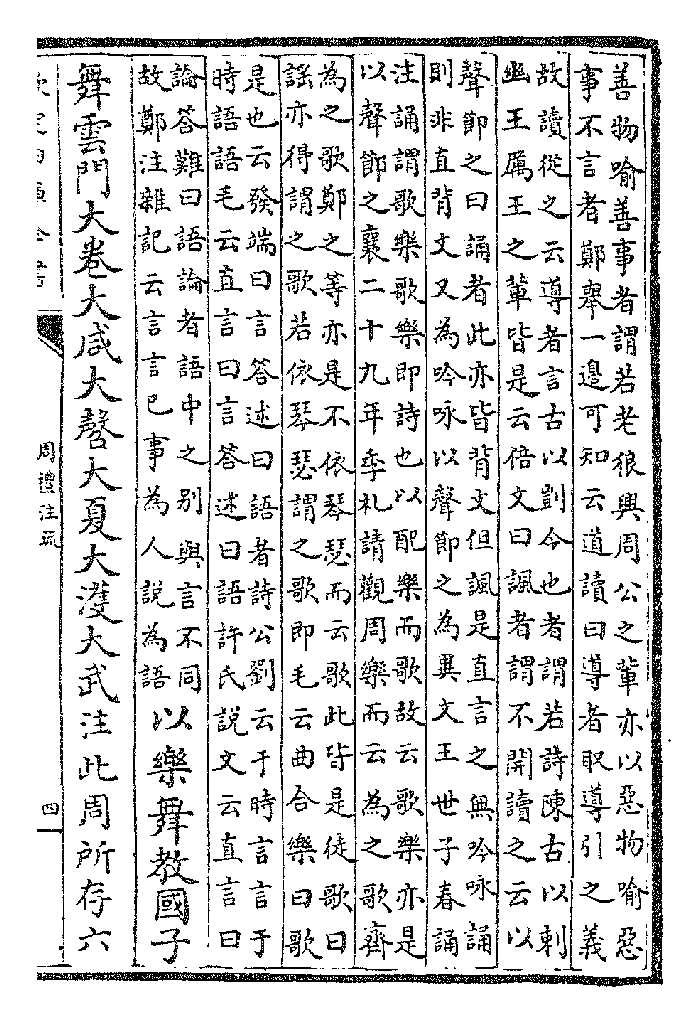 善物喻善事者謂若老狼興周公之輩亦以惡物喻惡
事不言者鄭舉一邊可知云道讀曰導者取導引之義
故讀從之云導者言古以剴今也者謂若詩陳古以刺
幽王厲王之輩皆是云倍文曰諷者謂不開讀之云以
聲節之曰誦者此亦皆背文但諷是直言之無吟咏誦
則非直背文又為吟咏以聲節之為異文王世子春誦
注誦謂歌樂歌樂即詩也以配樂而歌故云歌樂亦是
以聲節之襄二十九年季札請觀周樂而云為之歌齊
為之歌鄭之等亦是不依琴瑟而云歌此皆是徒歌曰
謡亦得謂之歌若依琴瑟謂之歌即毛云曲合樂曰歌
是也云發端曰言答述曰語者詩公劉云于時言言于
時語語毛云直言曰言答述曰語許氏說文云直言曰
論答難曰語論者語中之別與言不同
故鄭注雜記云言言已事為人說為語
以樂舞教國子
舞雲門大卷大咸大磬大夏大濩大武注此周所存六
周禮注疏
四